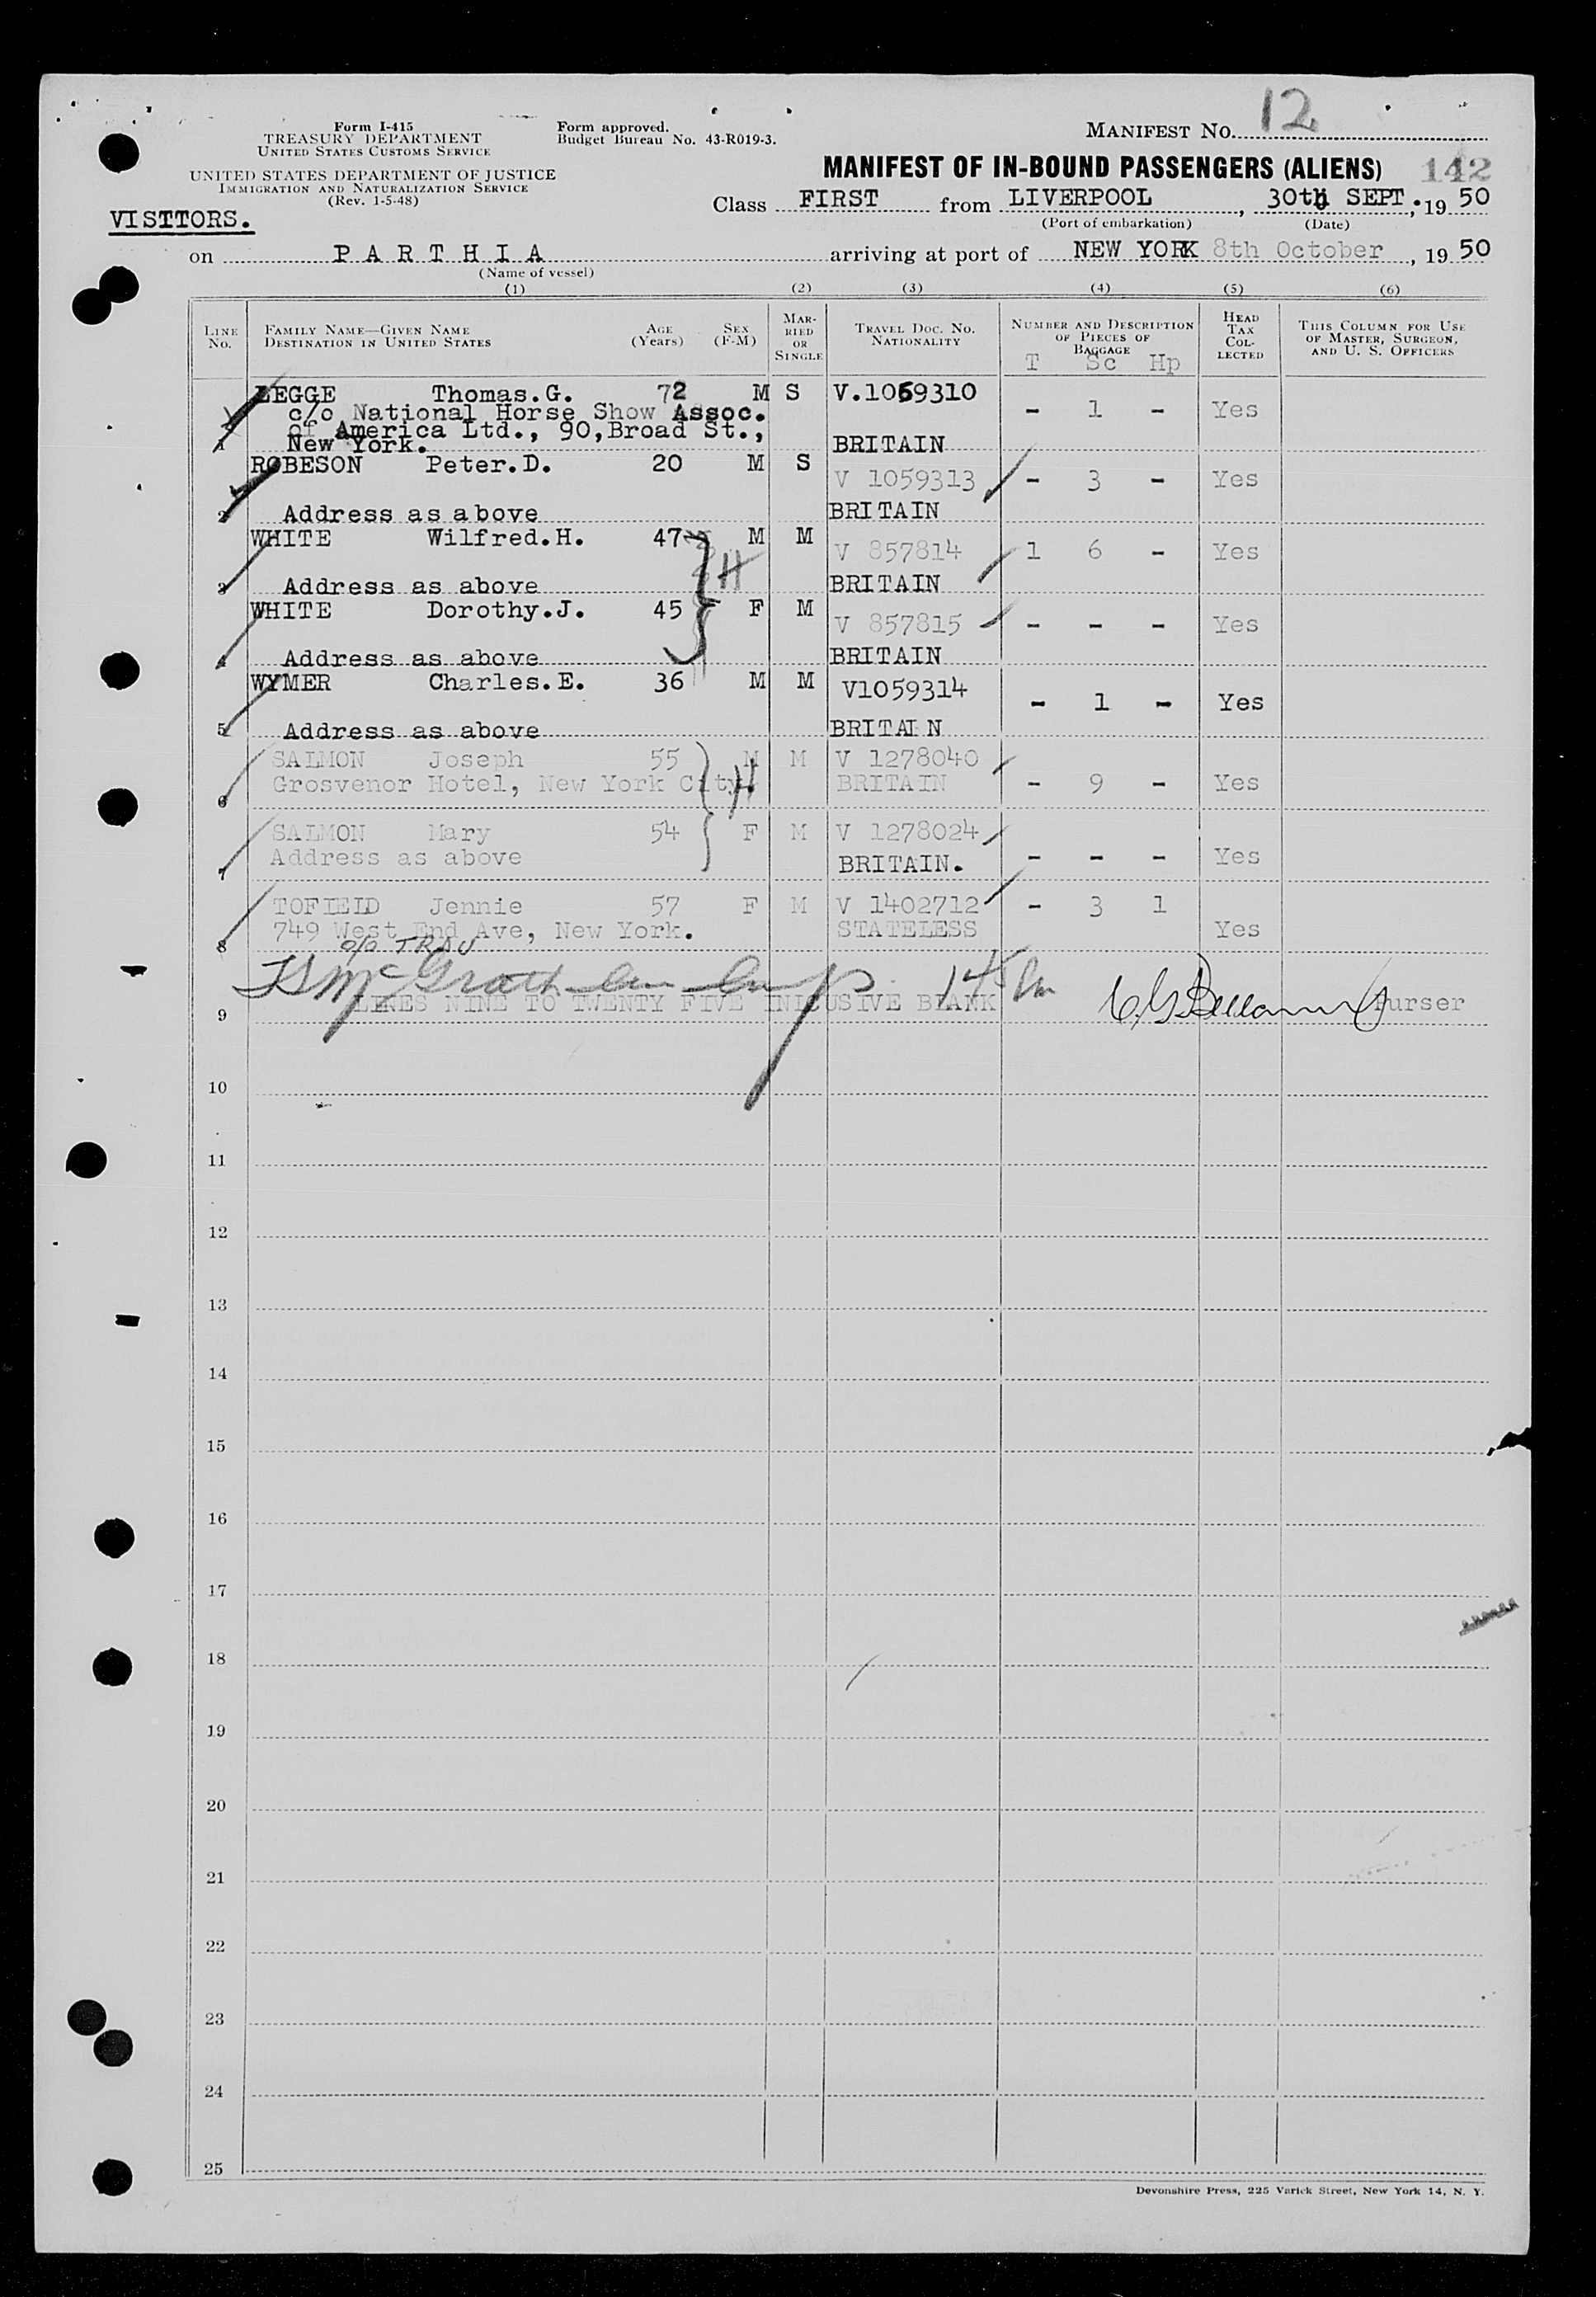 Form I-415
TREASURY DEPARTMENT
UNITED STATES CUSTOMS SERVICE
UNITED STATES DEPARTMENT OF JUSTICE
IMMIGRATION AND NATURALIZATION SERVICE
(Rev. 1-5-48)
Form approved.
Budget Bureau No. 43-R019-3.
MANIFEST No. 12
MANIFEST OF IN-BOUND PASSENGERS (ALIENS) 142
VISTTORS.
Class FIRST from LIVERPOOL, 30th SEPT., 19 50
(Port of embarkation) (Date)
on PARTHIA arriving at port of NEW YORK 8th October, 19 50
(Name of vessel)
(1) (2) (3) (4) (5) (6)
LINE No.
FAMILY NAME—GIVEN NAME
DESTINATION IN UNITED STATES
AGE (Years)
SEX (F-M)
MARRIED OR SINGLE
TRAVEL DOC. NO.
NATIONALITY
NUMBER AND DESCRIPTION OF PIECES OF BAGGAGE
T Sc Hp
HEAD TAX COLLECTED
THIS COLUMN FOR USE OF MASTER, SURGEON, AND U. S. OFFICERS
LEGGE Thomas.G. 72 M S V.1059310
c/o National Horse Show Assoc. - 1 - Yes
of America Ltd., 90,Broad St.,
1 New York. BRITAIN
ROBESON Peter.D. 20 M S V 1059313 - 3 - Yes
2 Address as above BRITAIN
WHITE Wilfred.H. 47 M M V 857814 1 6 - Yes
H
3 Address as above BRITAIN
WHITE Dorothy.J. 45 F M V 857815 - - - Yes
4 Address as above BRITAIN
WYMER Charles.E. 36 M M V1059314 - 1 - Yes
5 Address as above BRITAIN
SALMON Joseph 55 M M V 1278040
6 Grosvenor Hotel, New York City. BRITAIN - 9 - Yes
H
SALMON Mary 54 F M V 1278024
7 Address as above BRITAIN. - - - Yes
TOFIELD Jennie 57 F M V 1402712 - 3 1
8 749 West End Ave, New York. STATELESS Yes
9 LINES NINE TO TWENTY FIVE INICUSIVE BLANK Purser
10
11
12
13
14
15
16
17
18
19
20
21
22
23
24
25
Devonshire Press, 225 Varick Street, New York 14, N. Y.